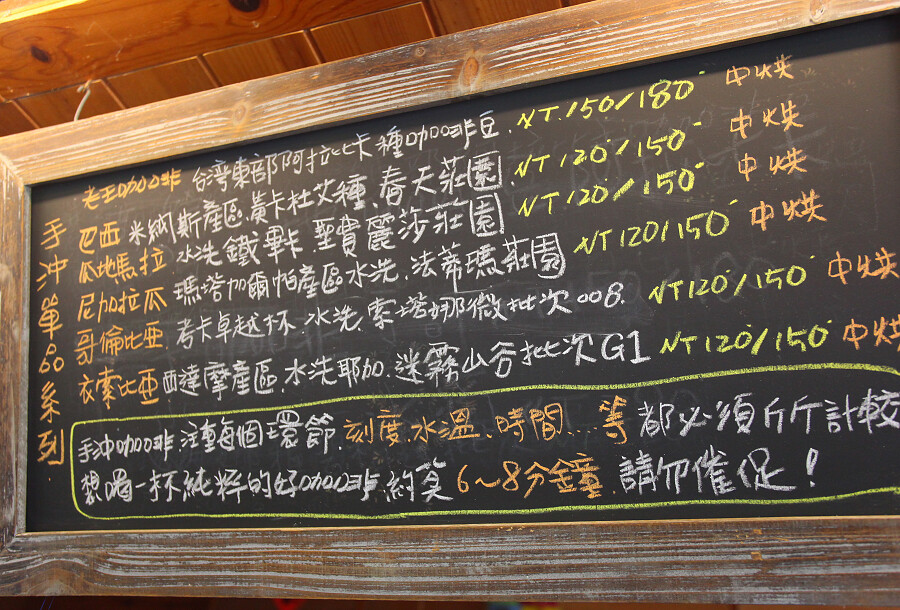 手沖單品系列
老王咖啡 台灣東部阿拉比卡種咖啡豆. NT.150/180 中烘
巴西 米納斯產區.黃卡杜艾種、春天莊園 NT120/150 中烘
瓜地馬拉 水洗.鐵畢卡 聖費麗莎莊園 NT120/150 中烘
尼加拉瓜 瑪塔加爾帕產區水洗.法蒂瑪莊園 NT120/150 中烘
哥倫比亞 考卡卓越杯.水洗.索塔娜微批次008. NT120/150 中烘
衣索比亞 西達摩產區.水洗耶加.迷霧山谷批次G1 NT120/150 中烘
手沖咖啡.注重每個環節.刻度.水溫.時間...等 都必須斤斤計較
想喝一杯純粹的好咖啡.約莫 6~8分鐘.請勿催促!